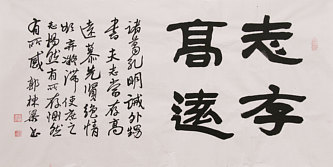 志存
高遠
諸葛孔明誡外甥
書夫志當存高
遠慕先賢絕情
欲弃凝滯使庶之
志揭然有所存惻然
有所感郭